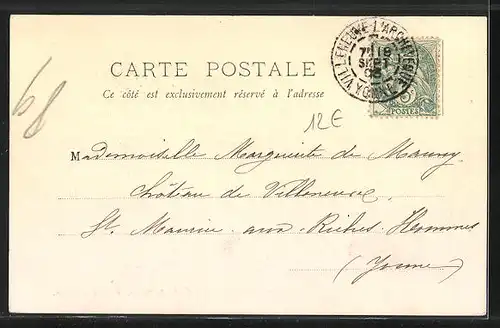 VILLENEUVE-L'ARCHEVEQUE
7E 18
SEPT
03
YONNE
POSTES
CARTE POSTALE
Ce côté est exclusivement réservé à l'adresse
12€
Mademoiselle Marguerite de Mauny
Château de Villeneuve
St. Maurice aux Riches Hommes
(Yonne)